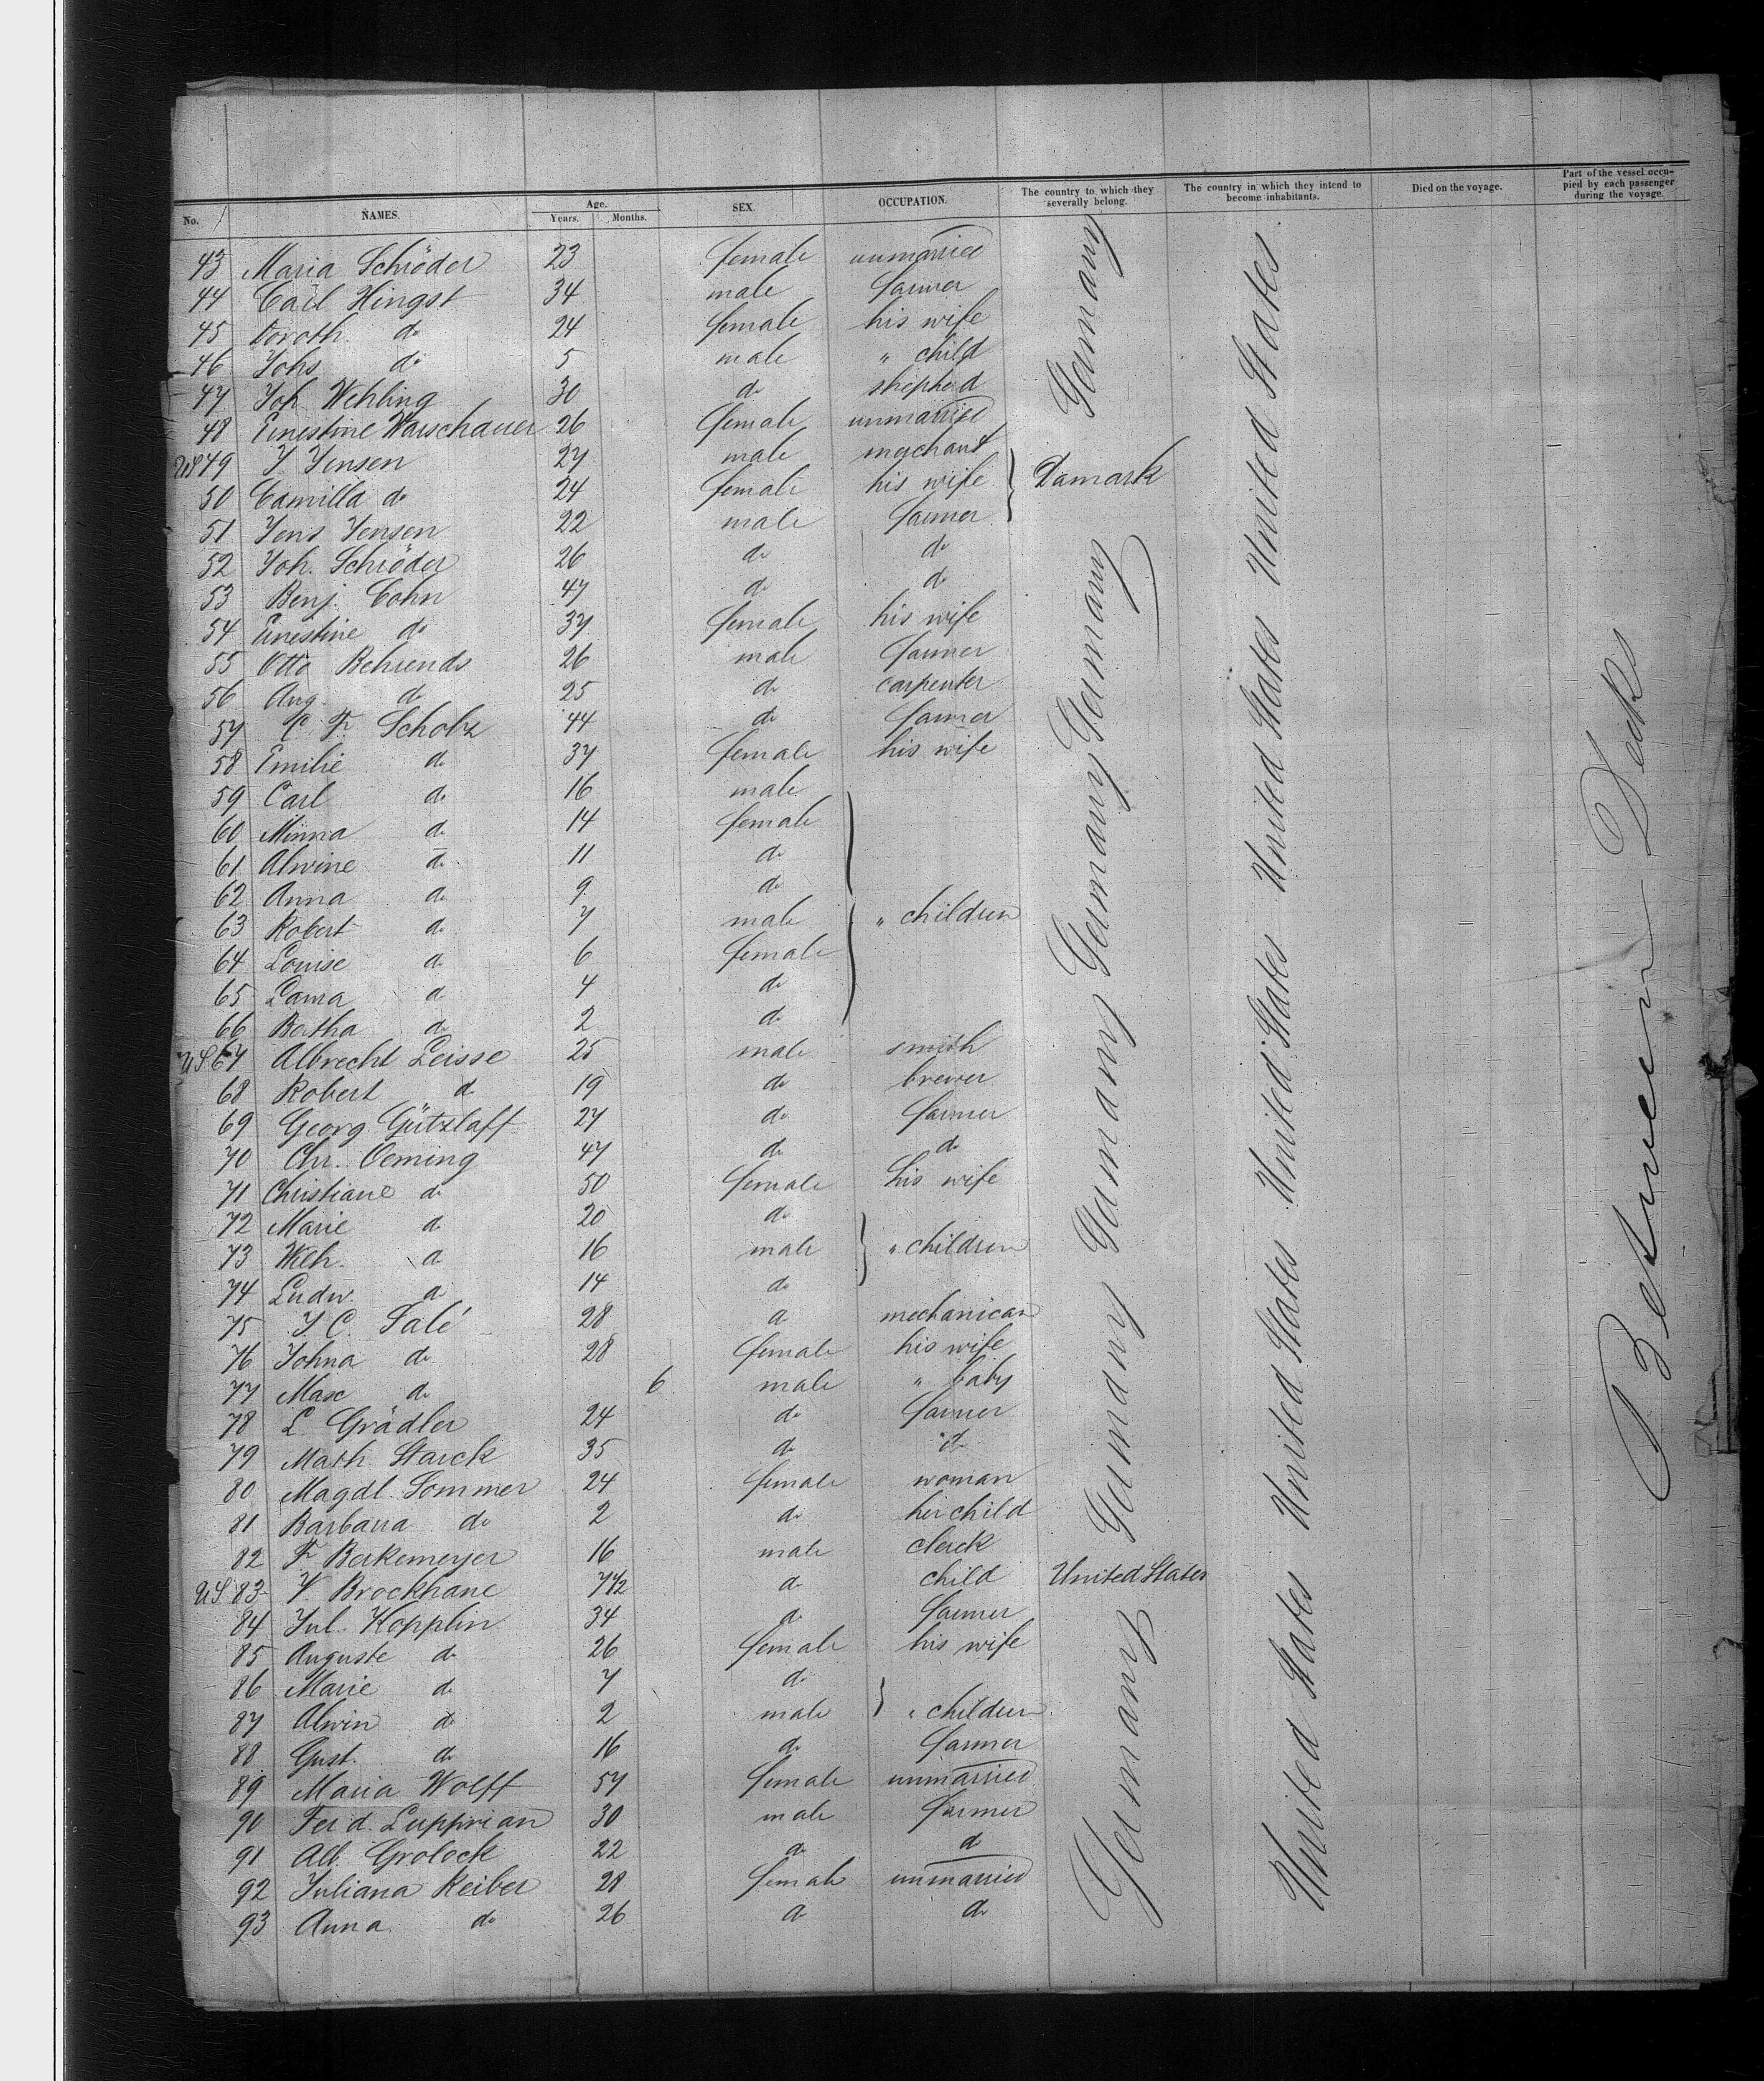 No. NAMES. Age. Years. Months. SEX. OCCUPATION. The country to which they severally belong. The country in which they intend to become inhabitants. Died on the voyage. Part of the vessel occupied by each passenger during the voyage.
43 Maria Schröder 23 female unmarried
44 Carl Hingst 34 male farmer
45 Doroth. do 24 female his wife
46 Johs do 5 male " child
47 Joh Wehling 30 do shepherd
48 Ernestine Warschauer 26 female unmarried
US 49 J Jensen 27 male merchant
50 Camilla do 24 female his wife Damark
51 Jens Jensen 22 male farmer
52 Joh. Schröder 26 do do
53 Benj. Cohn 47 do do
54 Ernestine do 37 female his wife
55 Otto Behrends 26 male farmer
56 Aug. do 25 do carpenter
57 C. F. Scholz 44 do farmer
58 Emilie do 37 female his wife
59 Carl do 16 male
60 Minna do 14 female
61 Alwine do 11 do
62 Anna do 9 do
63 Robert do 7 male " children
64 Louise do 6 female
65 Laura do 4 do
66 Bertha do 2 do
US 67 Albrecht Leisse 25 male smith
68 Robert do 19 do brewer
69 Georg Gützlaff 27 do farmer
70 Chr. Oeming 47 do do
71 Christiane do 50 female his wife
72 Marie do 20 do
73 Wilh. do 16 male " children
74 Ludw. do 14 do
75 J. C. Salé 28 do mechanican
76 Johna do 28 female his wife
77 Max do 6 male " baby
78 L Grädler 24 do farmer
79 Math Starck 35 do do
80 Magdl. Sommer 24 female woman
81 Barbara do 2 do her child
82 Fr Berkemeyer 16 male clerck
US 83 V. Brockhane 7 1/2 do child United States
84 Jul. Kopplin 34 do farmer
85 Auguste do 26 female his wife
86 Marie do 7 do
87 Alwin do 2 male " children
88 Gust. do 16 do farmer
89 Maria Wolff 57 female unmarried
90 Ferd. Lupprian 30 male farmer
91 Alb. Grolock 22 do do
92 Juliana Reiber 28 female unmarried
93 Anna do 26 do do
Germany
Germany Germany Germany Germany Germany
Germany
United States United States United States United States United States United States United States
Between Decks